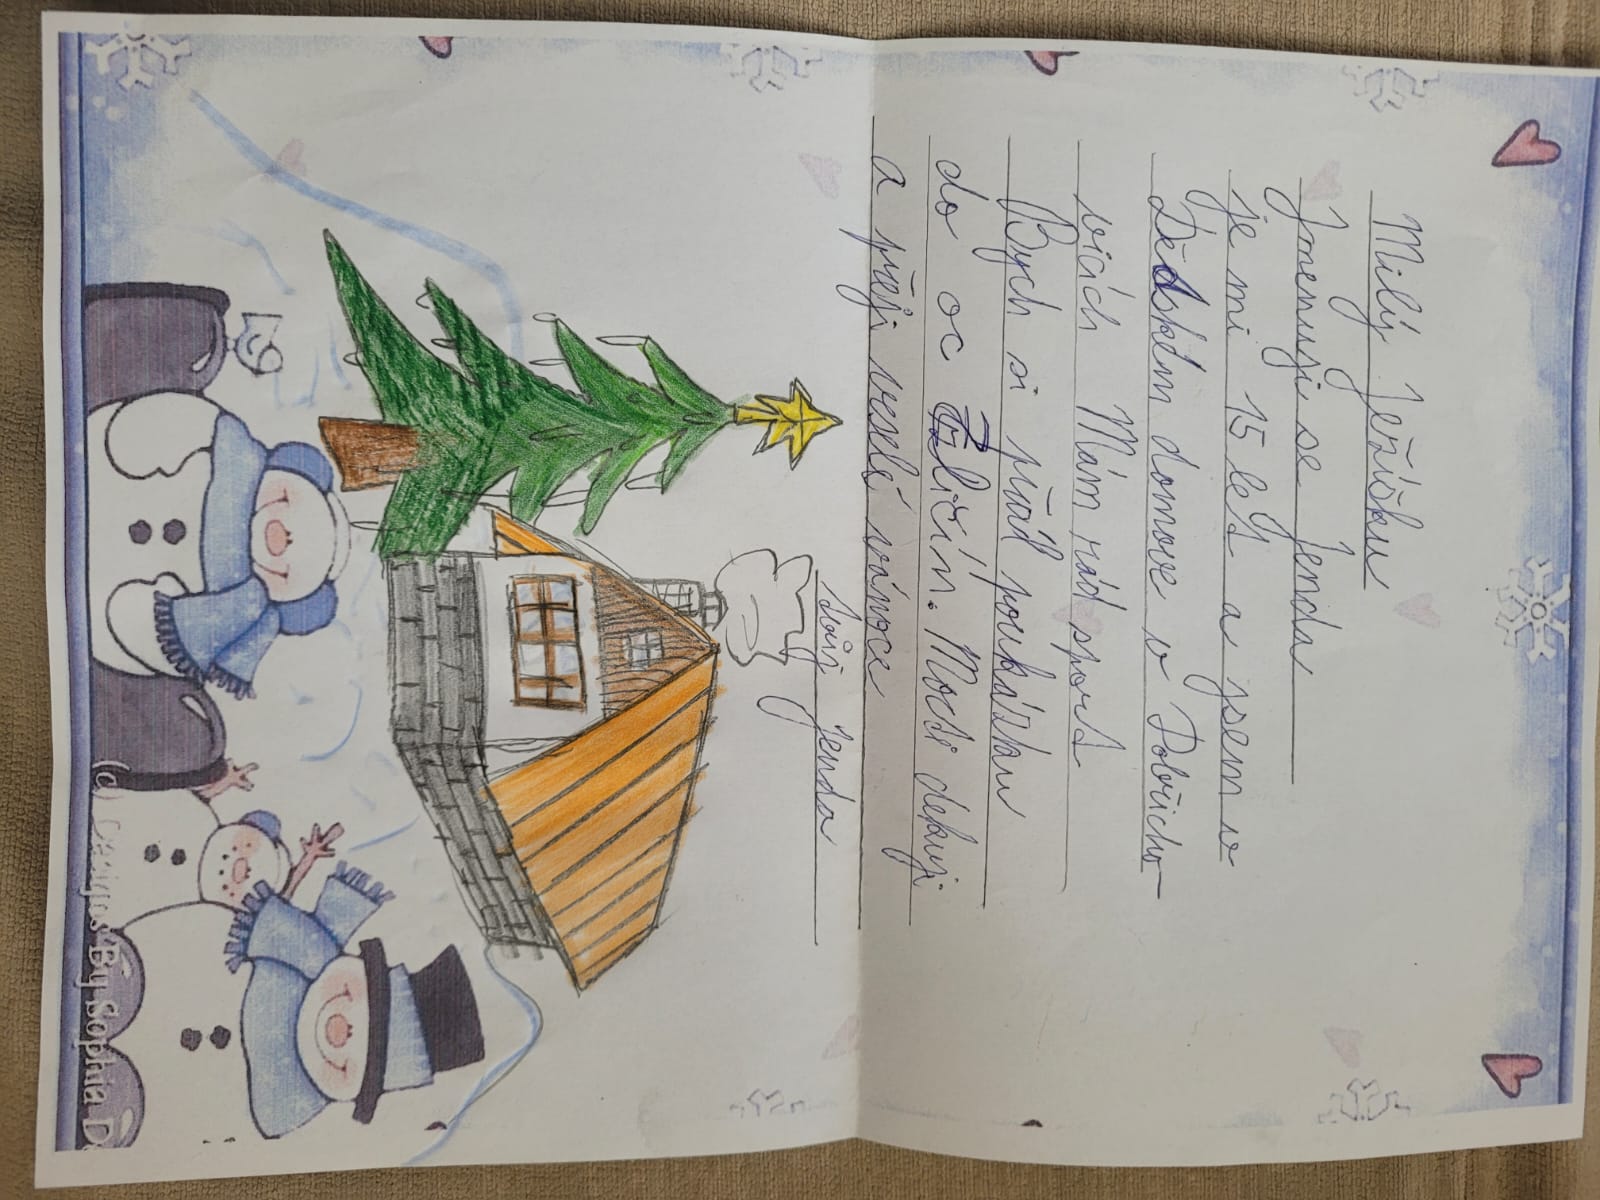 Milý Ježíšku
Jmenuji se Jenda
je mi 15 let a jsem v
Dědském domově v Dobřicho
vicích Mám rád sport
Bych si přál poukázku
do oc Zličín. Moc děkuji
a přeji veselé vánoce
Tvůj Jenda
(c) Designs By Sophia D